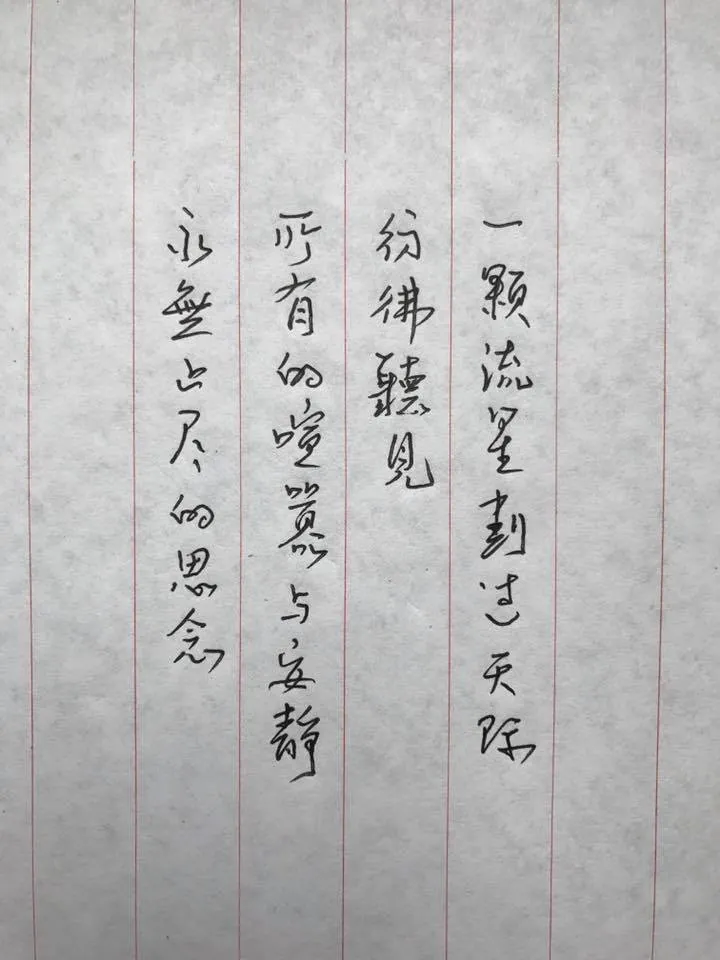 一顆流星劃过天际
彷彿聽見
所有的喧嚣与安靜
永無止尽的思念